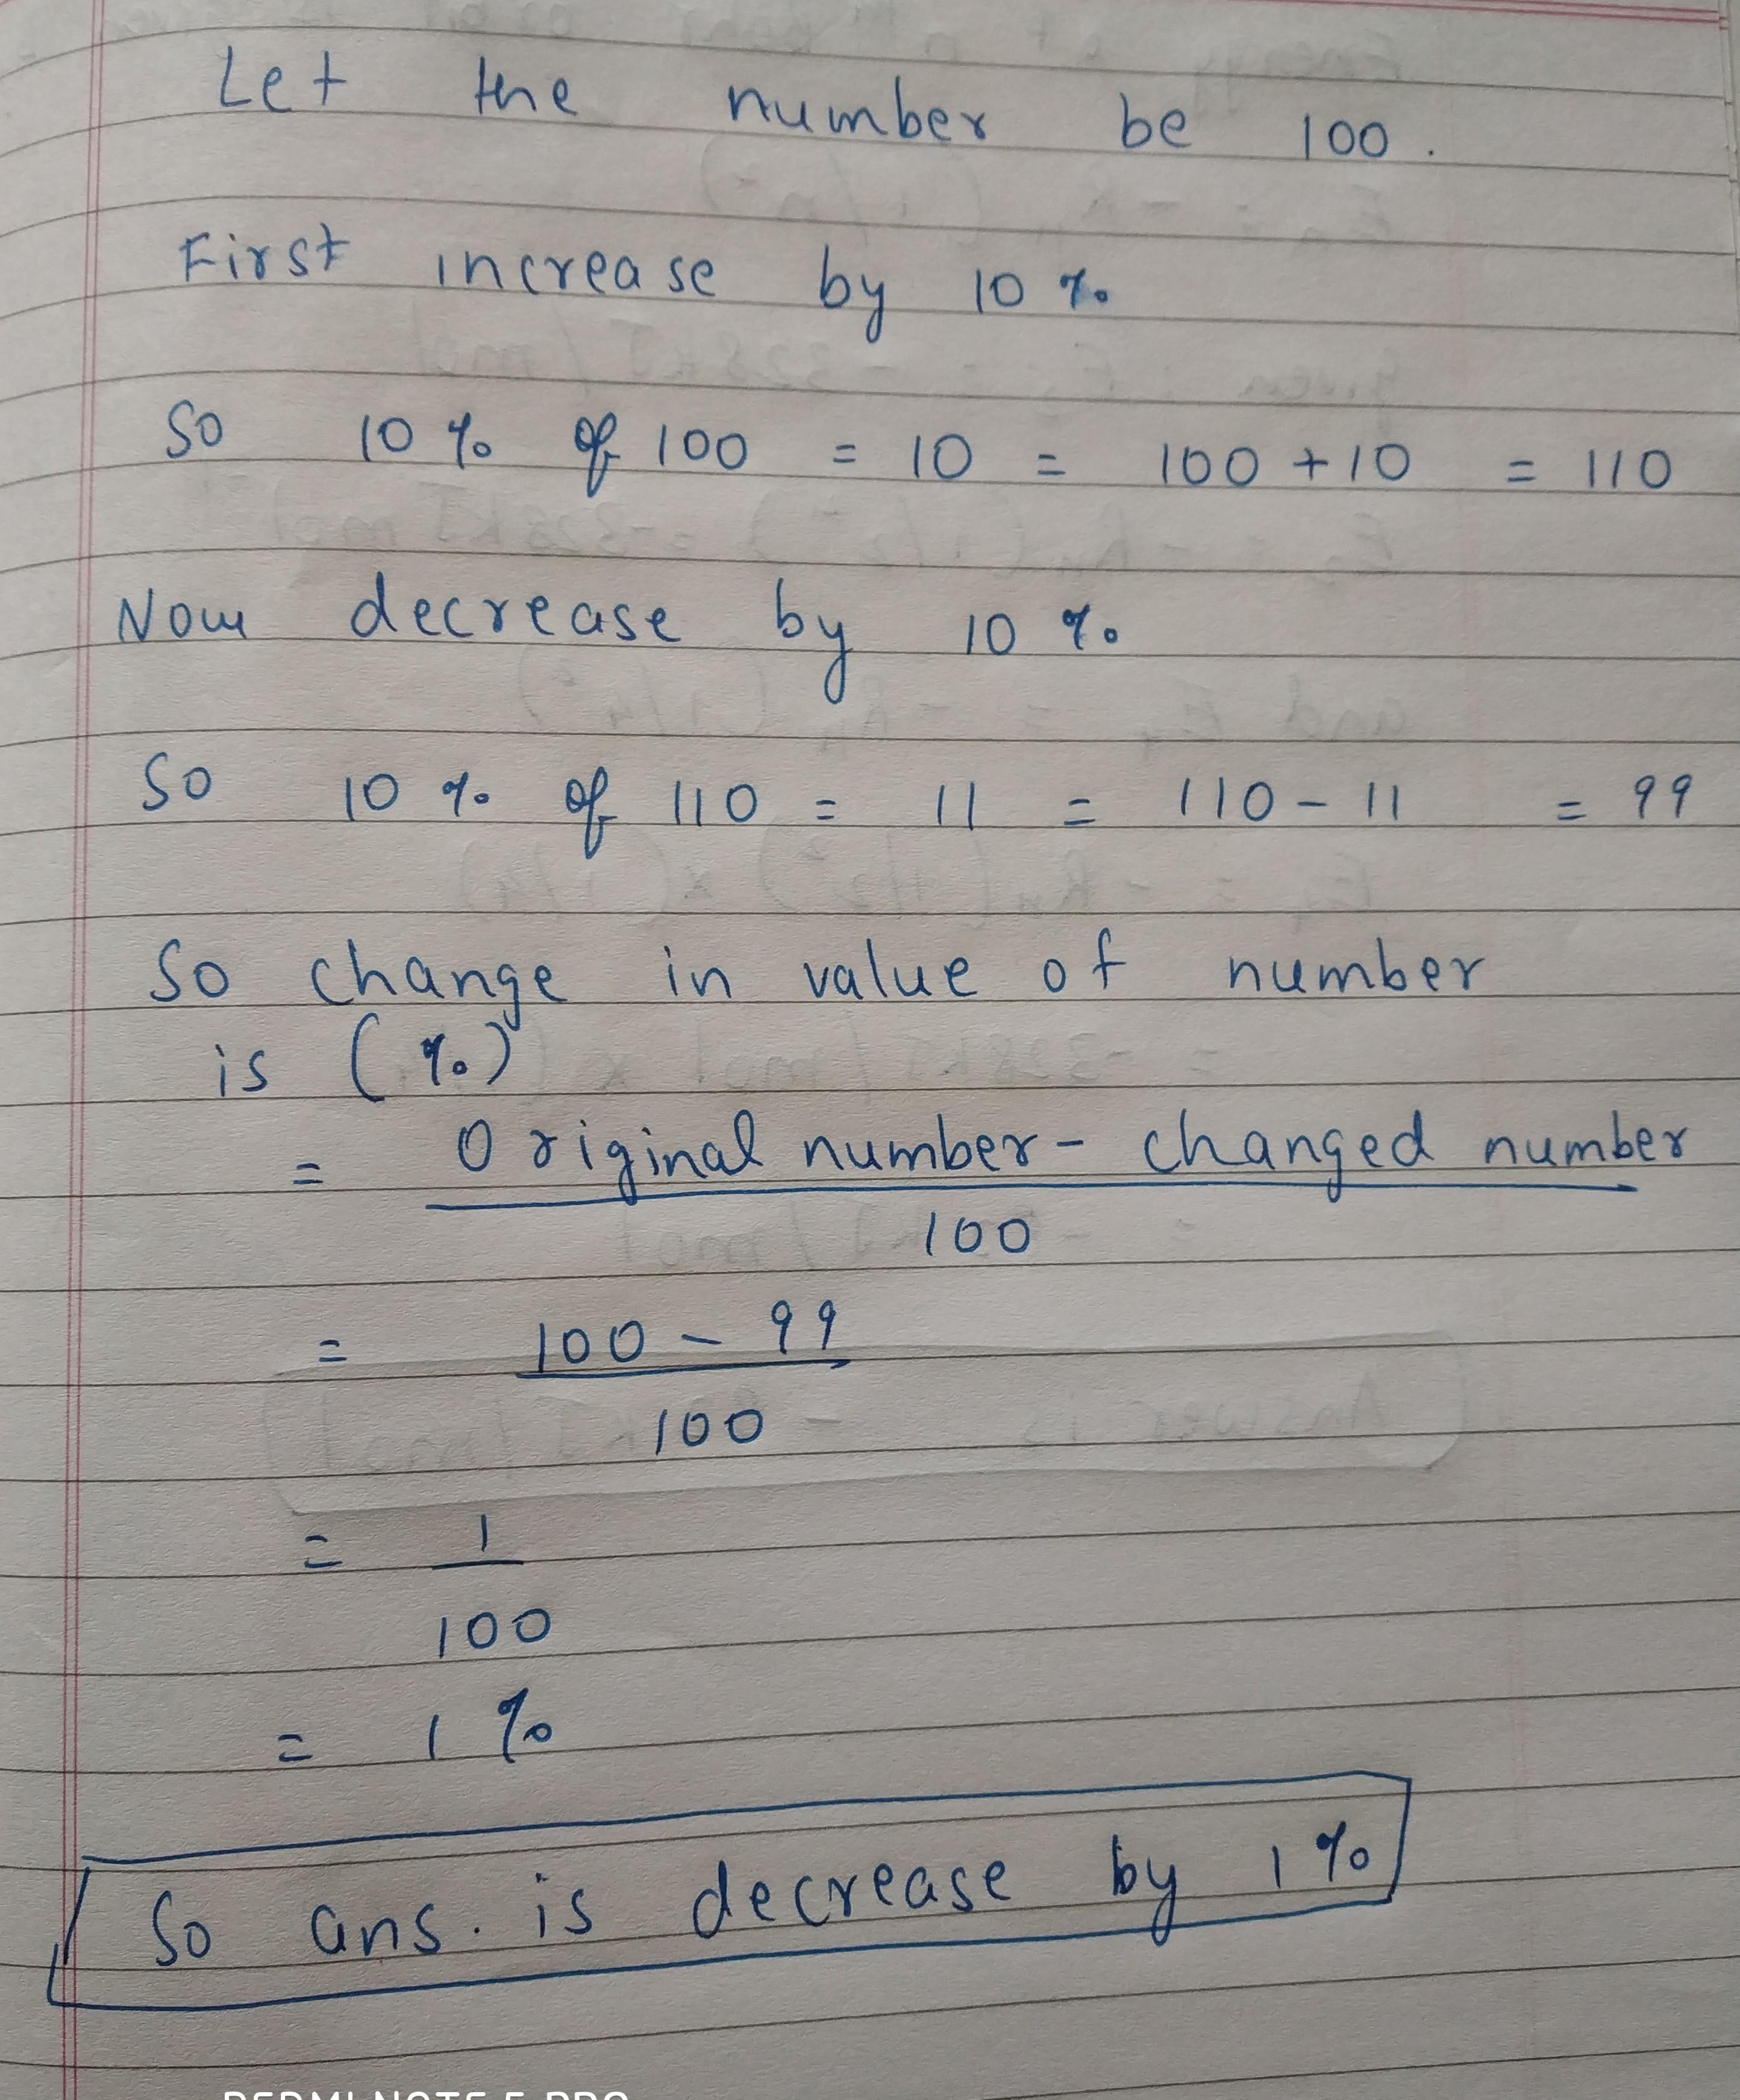 Let the number be 100.
First increase by 10 %
So 10 % of 100 = 10 = 100 + 10 = 110
Now decrease by 10 %
So 10 % of 110 = 11 = 110 - 11 = 99
So change in value of number
is (%)
= Original number - changed number
100
= 100 - 99
100
= 1
100
= 1 %
So ans. is decrease by 1 %